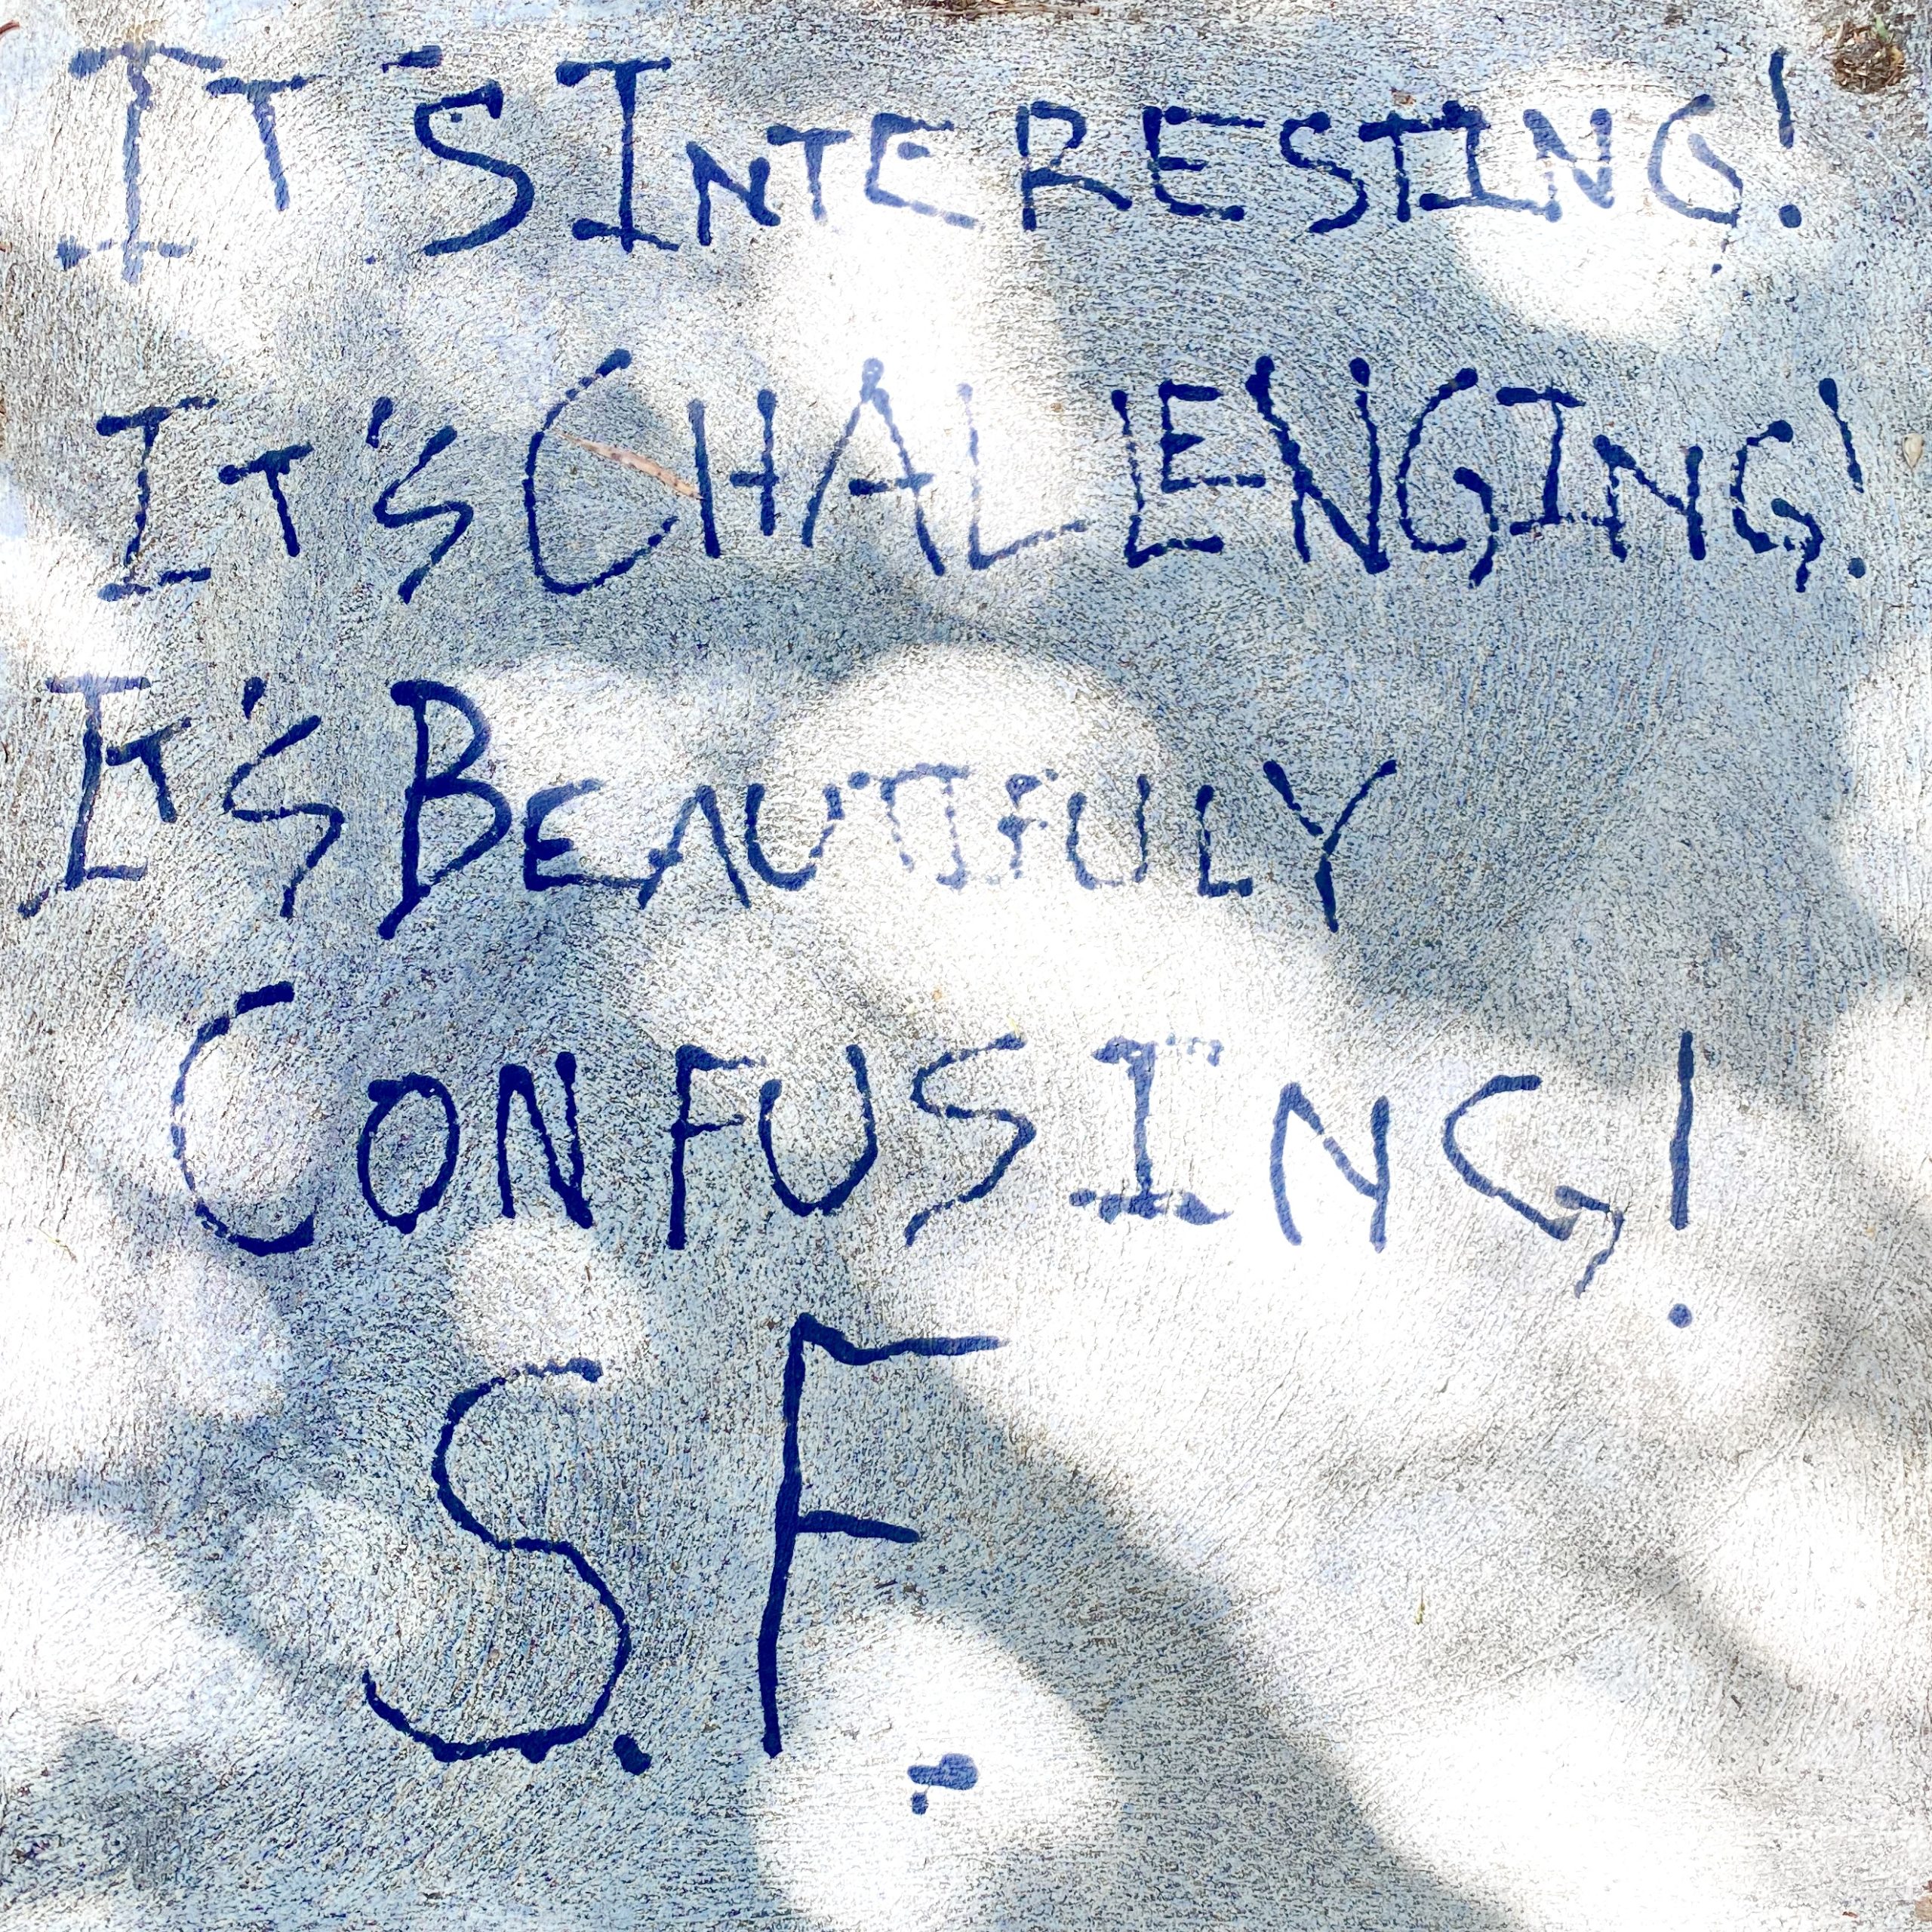 IT'S INTERESTING!
IT'S CHALLENGING!
IT'S BEAUTIFULY
CONFUSING!
S.F.